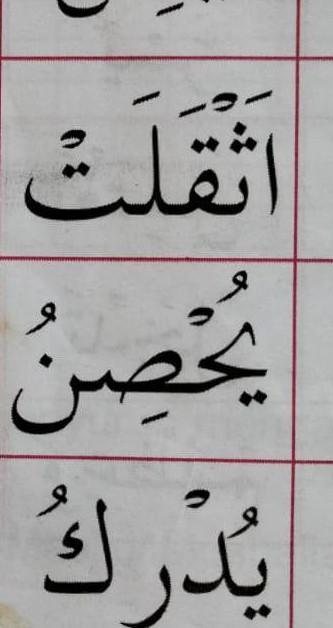 اَثْقَلَتْ
يُحْصِنُ
يُدْرِكُ